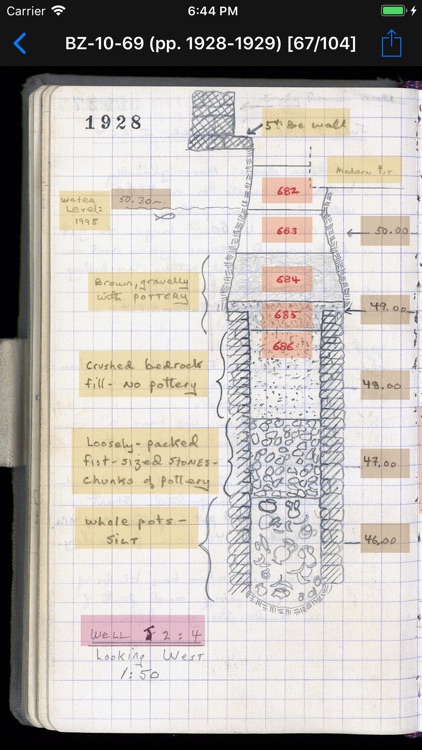 Carrier 6:44 PM
BZ-10-69 (pp. 1928-1929) [67/104]
1928
5th BC wall
Modern Pit
682
Water
Level:
1995
50.30
683
50.00
684
Brown, gravelly
with POTTERY
49.00
685
686
Crushed bedrock
fill - No pottery
48.00
Loosely-packed
fist-sized STONES-
chunks of pottery
47.00
whole pots -
SILT
46.00
WELL J 2 : 4
Looking West
1:50